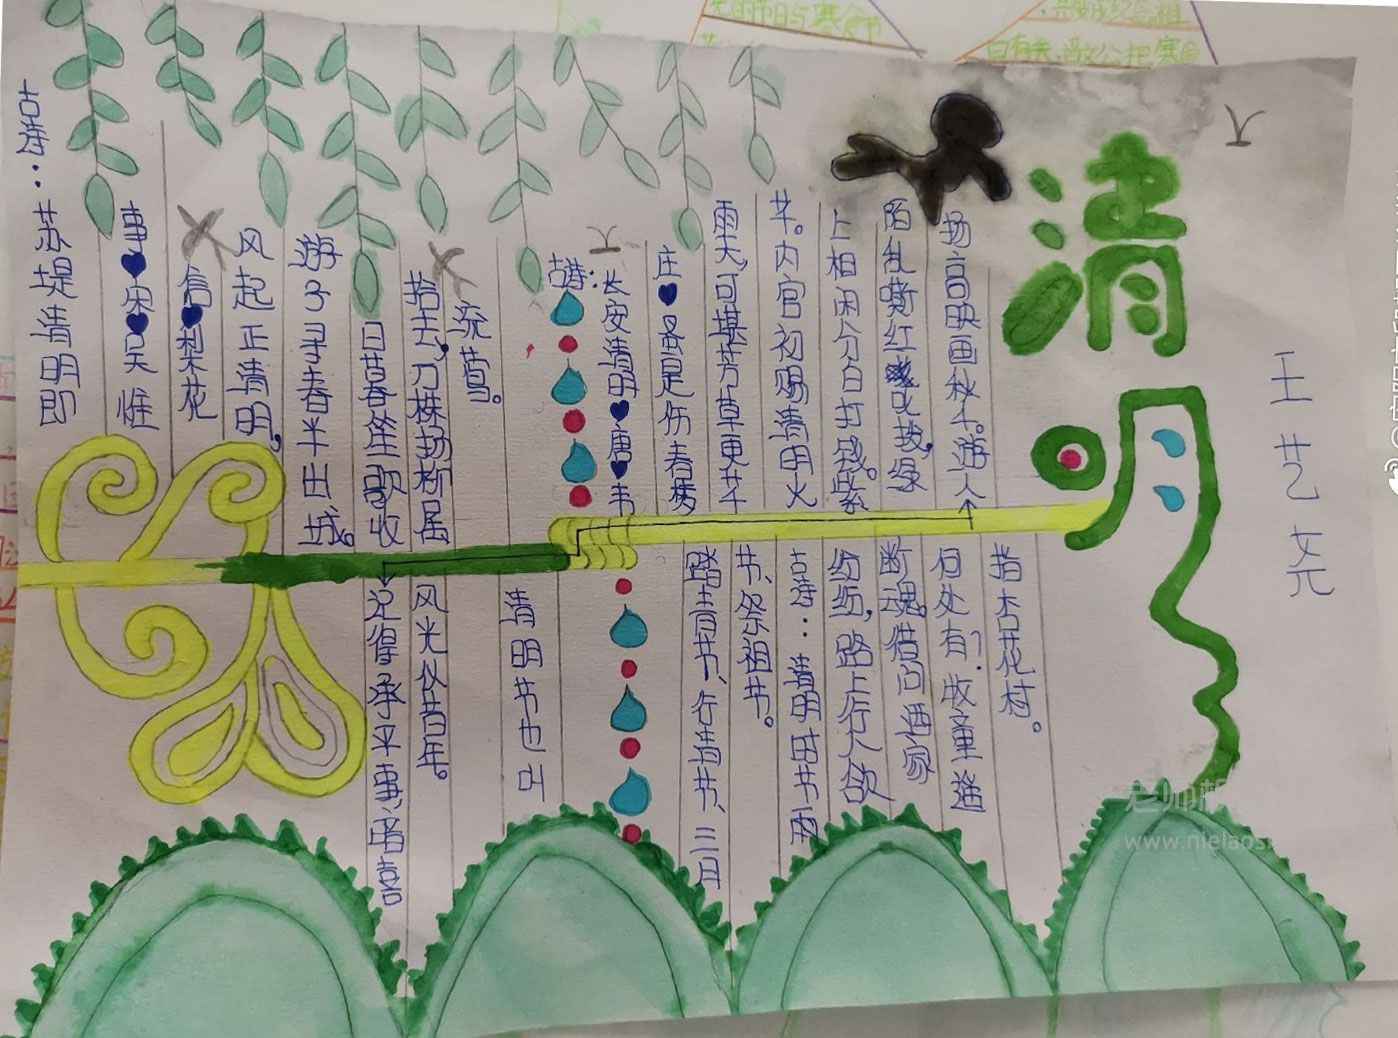 清明
王艺尧
古诗：苏堤清明即
事♥宋♥吴惟
信♥梨花
风起正清明，
游子寻春半出城。
日暮笙歌收
拾去，万株杨柳属
流莺。
古诗：
长安清明♥唐♥韦
庄♥蚤是伤春梦
雨天，可堪芳草更芊
芊。内官初赐清明火
上相闲分白打钱。紫
陌乱嘶红叱拨，绿
扬高映画秋千。游人
记得承平事，暗喜
风光似昔年。
清明节也叫
踏青节、行清节、三日
节、祭祖节。
古诗：清明时节雨
纷纷，路上行人欲
断魂。借问酒家
何处有？牧童遥
指杏花村。
www.nielaos